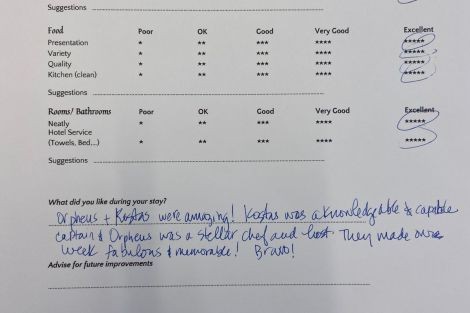 Suggestions
Food Poor OK Good Very Good Excellent
Presentation * ** *** **** *****
Variety * ** *** **** *****
Quality * ** *** **** *****
Kitchen (clean) * ** *** **** *****
Suggestions
Rooms/ Bathrooms Poor OK Good Very Good Excellent
Neatly * ** *** **** *****
Hotel Service
(Towels, Bed...) * ** *** **** *****
Suggestions
What did you like during your stay?
Orpheus + Kostas were amazing! Kostas was a knowledgeable & capable
captain & Orpheus was a stellar chef and host. They made our
week fabulous & memorable! Bravo!
Advise for future improvements